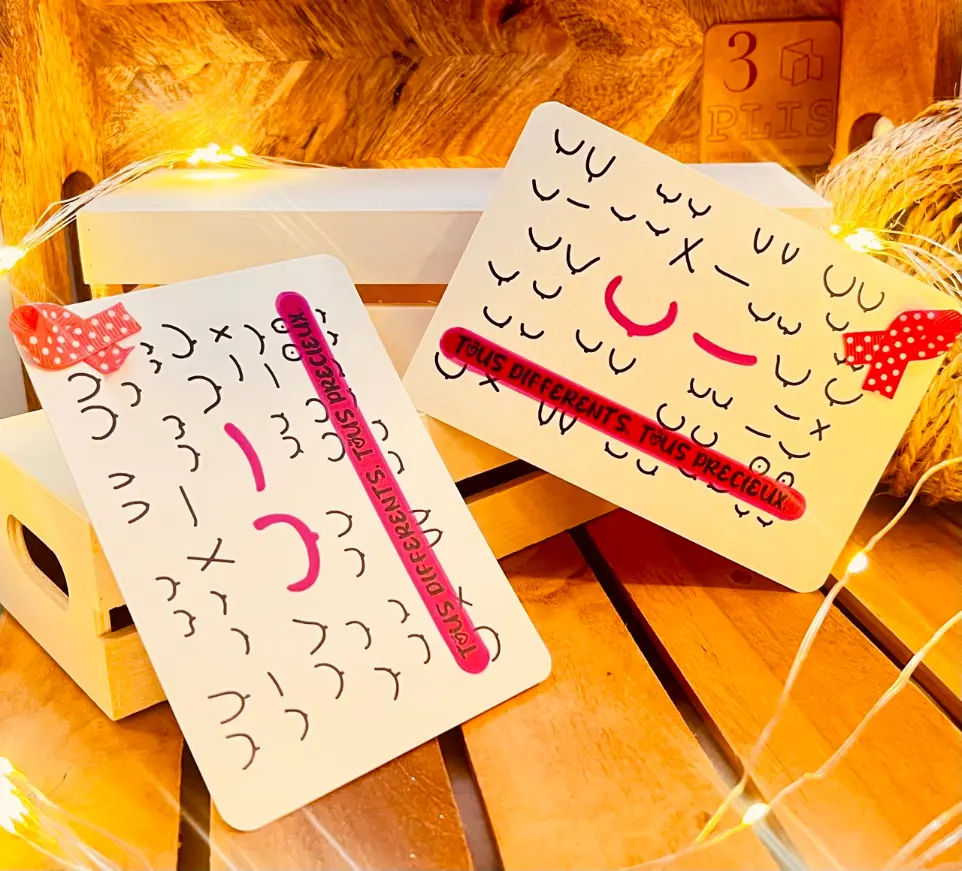 3
PLIS
TOUS DIFFERENTS. TOUS PRECIEUX
TOUS DIFFERENTS. TOUS PRECIEUX.